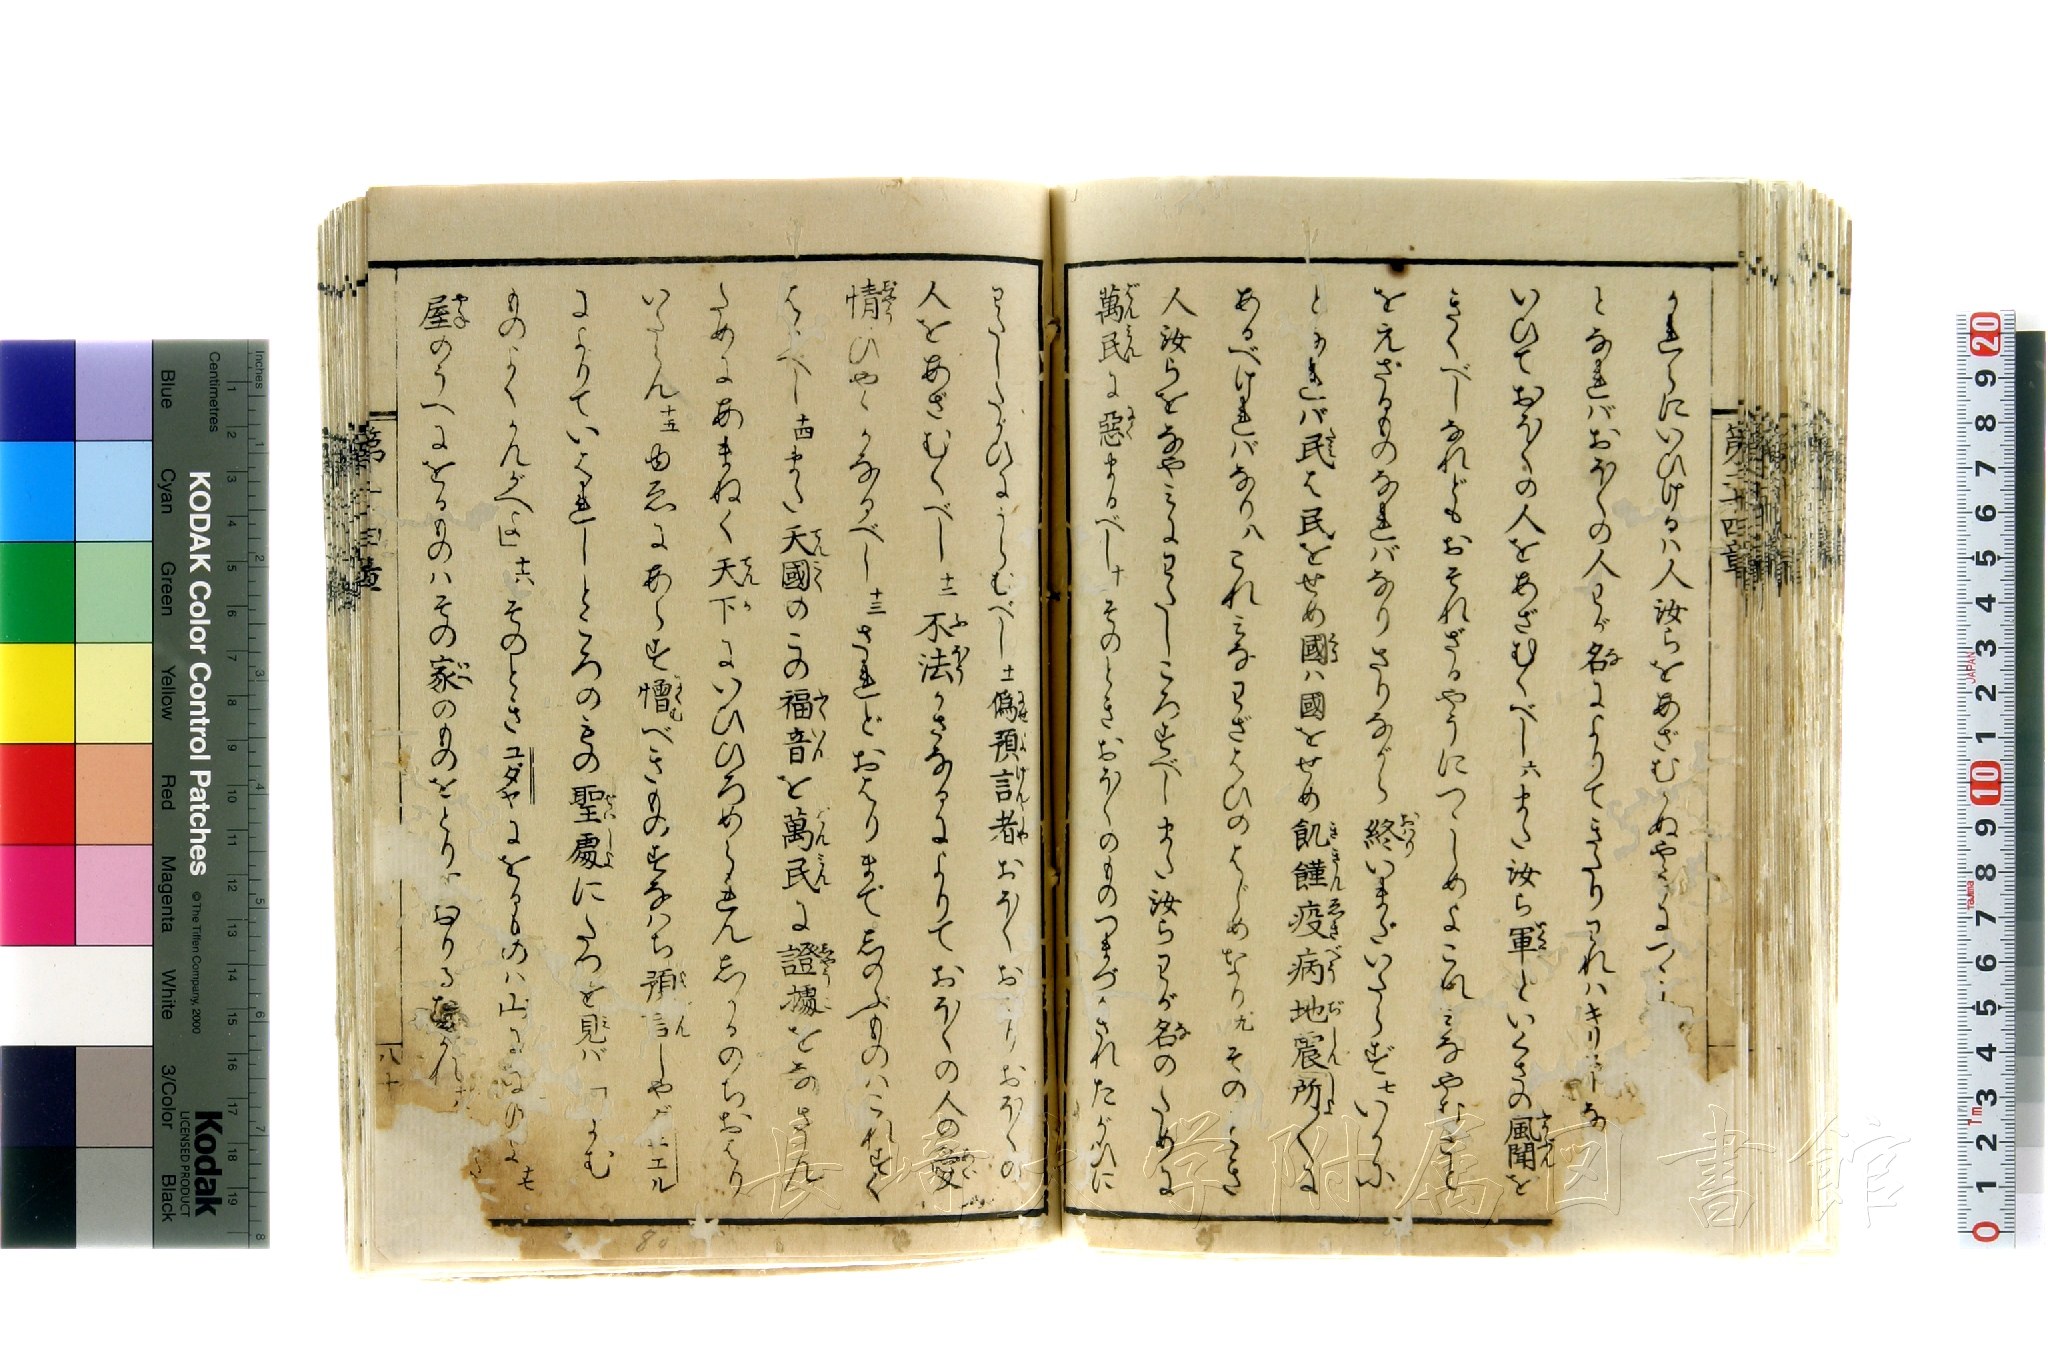 かれらにいひけるハ人汝らをあざむかぬやうにつ
となれバおほくの人わが名によりてきたりわれハキリ
いひておほくの人をあざむくべし六また汝ら軍といくさの風聞を
きくべしなれどもおそれざるやうにつつしめよこれみなやむこと
をえざるものなれバなりさりながら終いまだいたらず七いかに
となれバ民は民をせめ國ハ國をせめ飢饉疫病地震所〱に
あるべけれバなり八これみなわざはひのはじめなり九そのとき
人汝らをなやみにわたしころすべしまた汝らわが名のために
萬民に惡まるべし十そのときおほくのものつまづかされたがひに
わたしたがひにうらむべし十一僞預言者おほくおこりおほくの
人をあざむくべし十二不法かさなるによりておほくの人の愛
情ひやゝかなるべし十三されどおはりまで志のぶものハこれすく
はるべし十四また天國のこの福音を萬民に證據をなさん
ためにあまねく天下にいひひろめられん志かるのちおはり
いたらん十五ゆゑにあらす憎べきものすなハち預言しやダニエル
によりていはれしところのその聖處にたつを見バ
ものよくかんがへよ十六そのときユダヤにをるものハ山に
屋のうへにをるものハその家のものをとりに
第二十四章
八十
KODAK Color Control Patches
©The Tiffen Company, 2000
Kodak
LICENSED PRODUCT
Inches
Centimetres
Blue
Cyan
Green
Yellow
Red
Magenta
White
3/Color
Black
長崎大学附属図書館